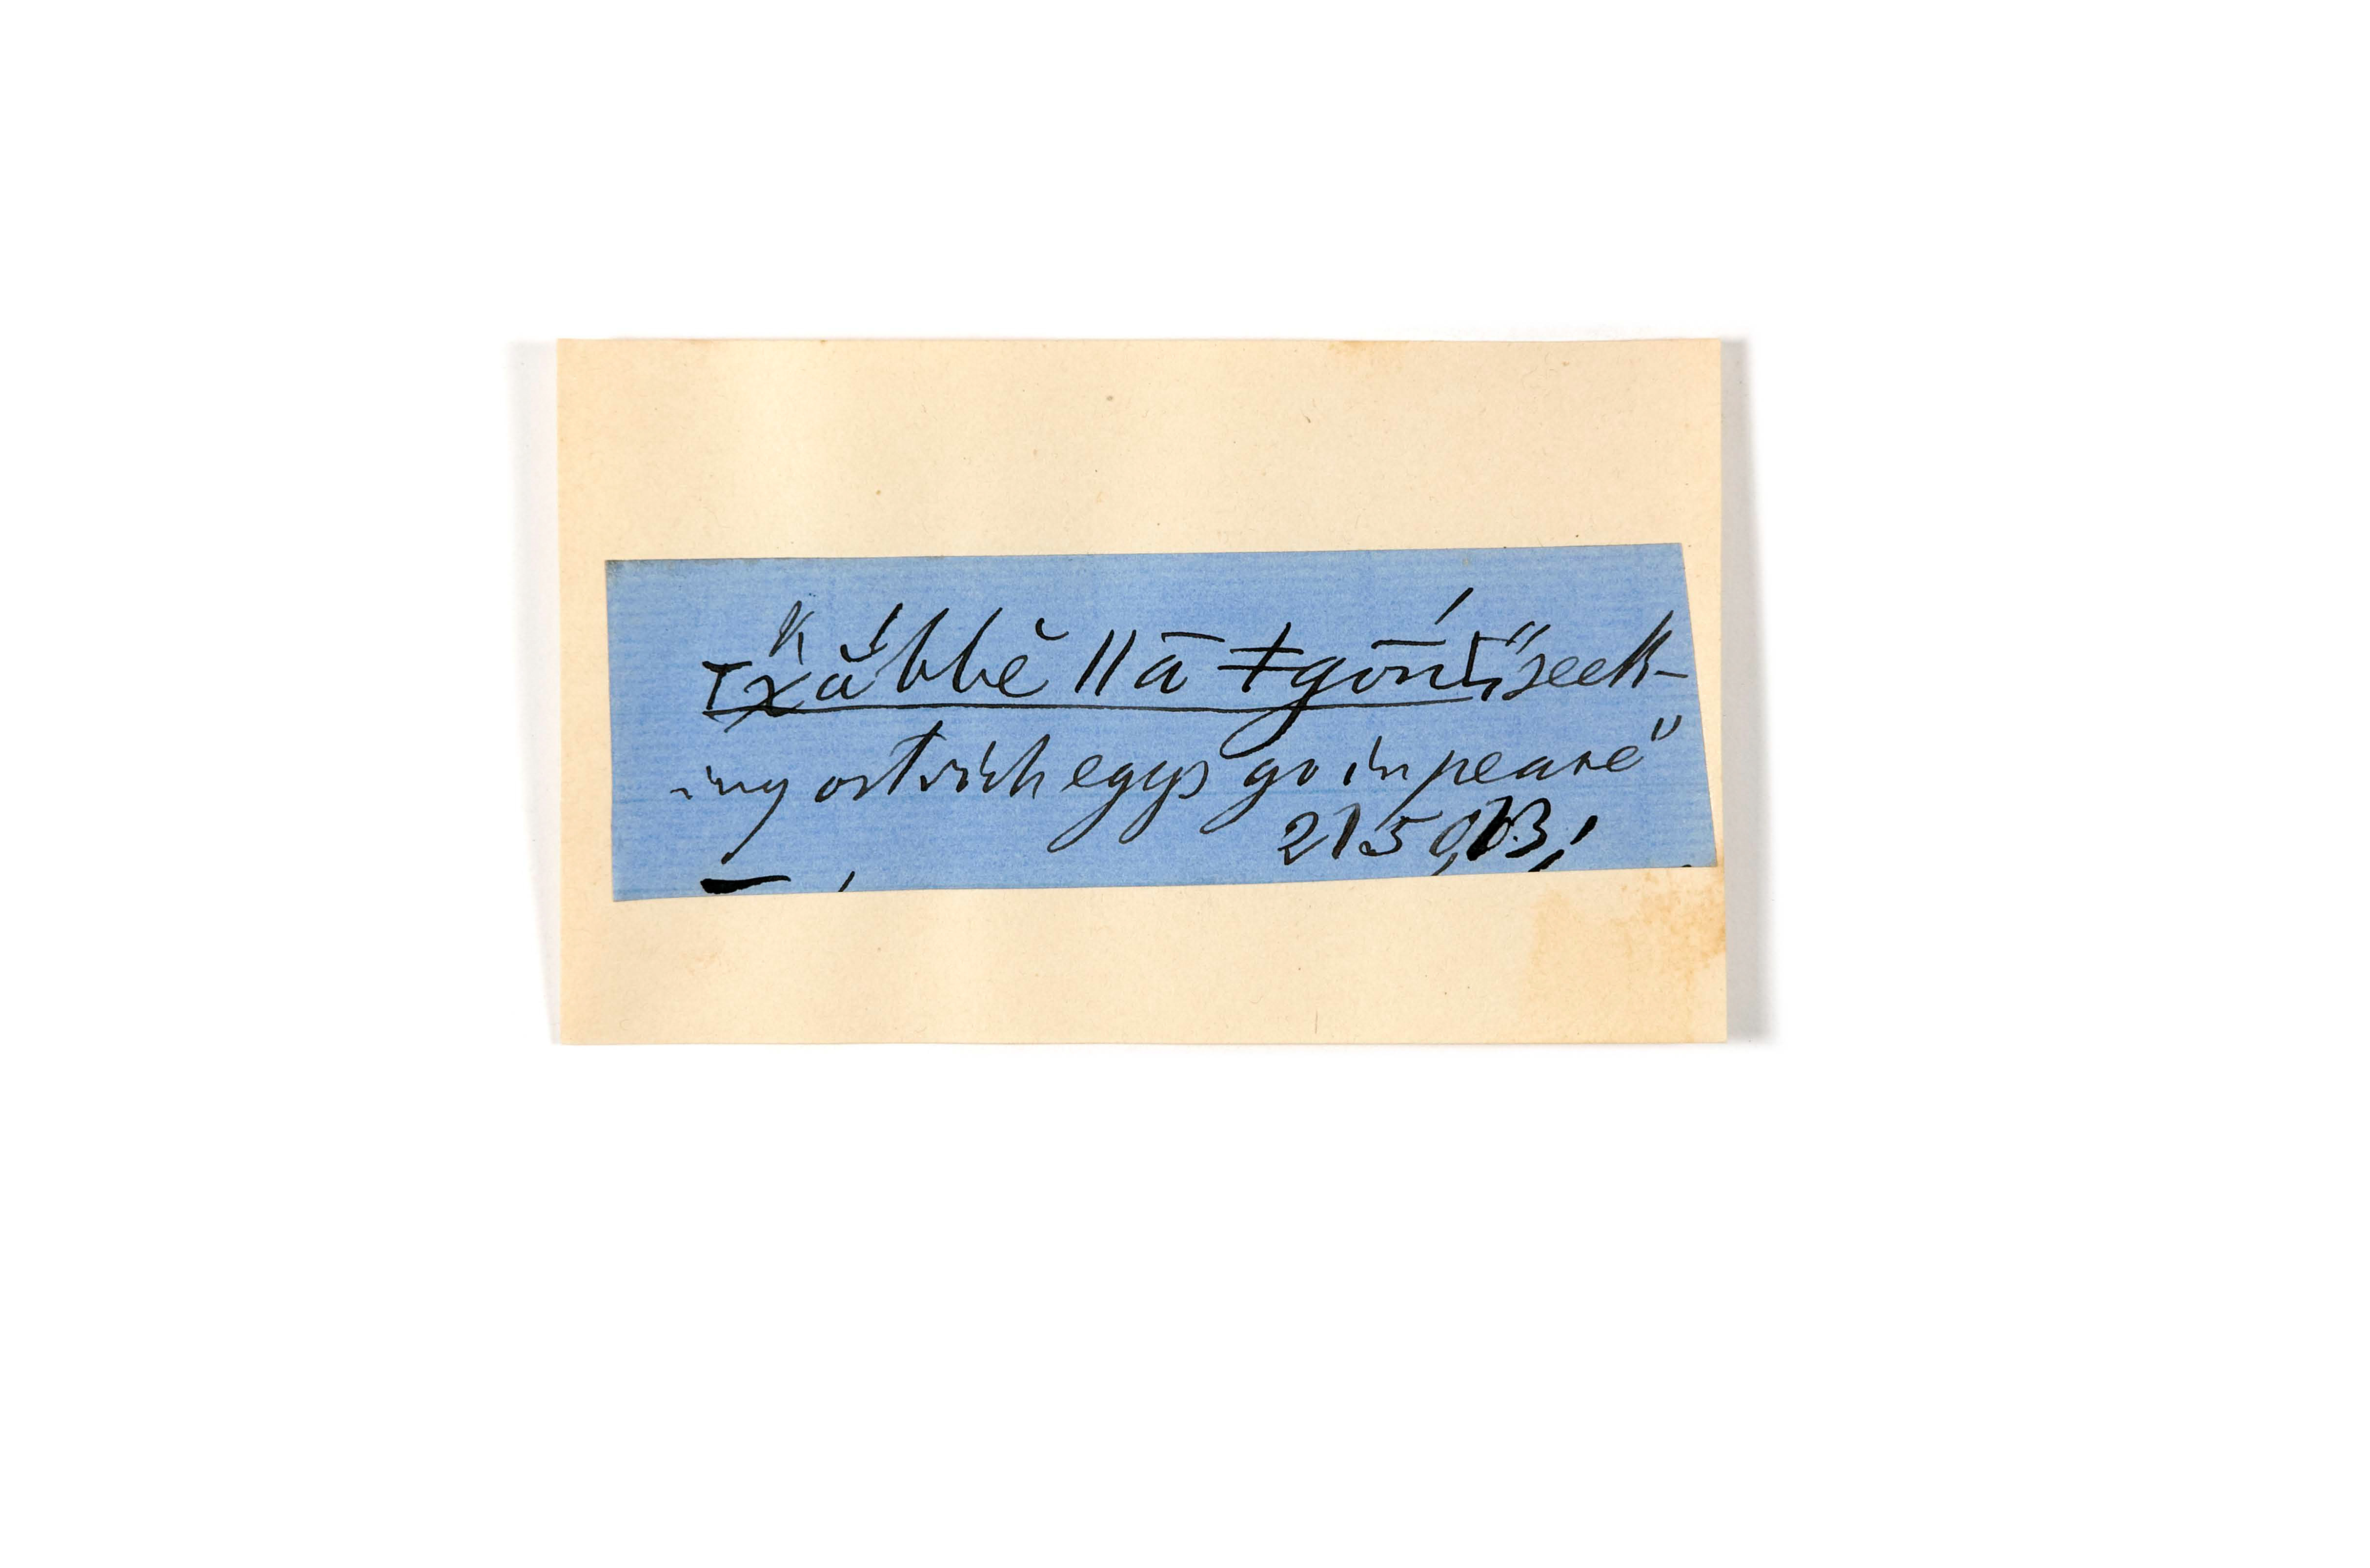 Txắbbĕ ǁā ǂgōń[, "seek-
ing ostrich eggs go in peace"
2150, B,